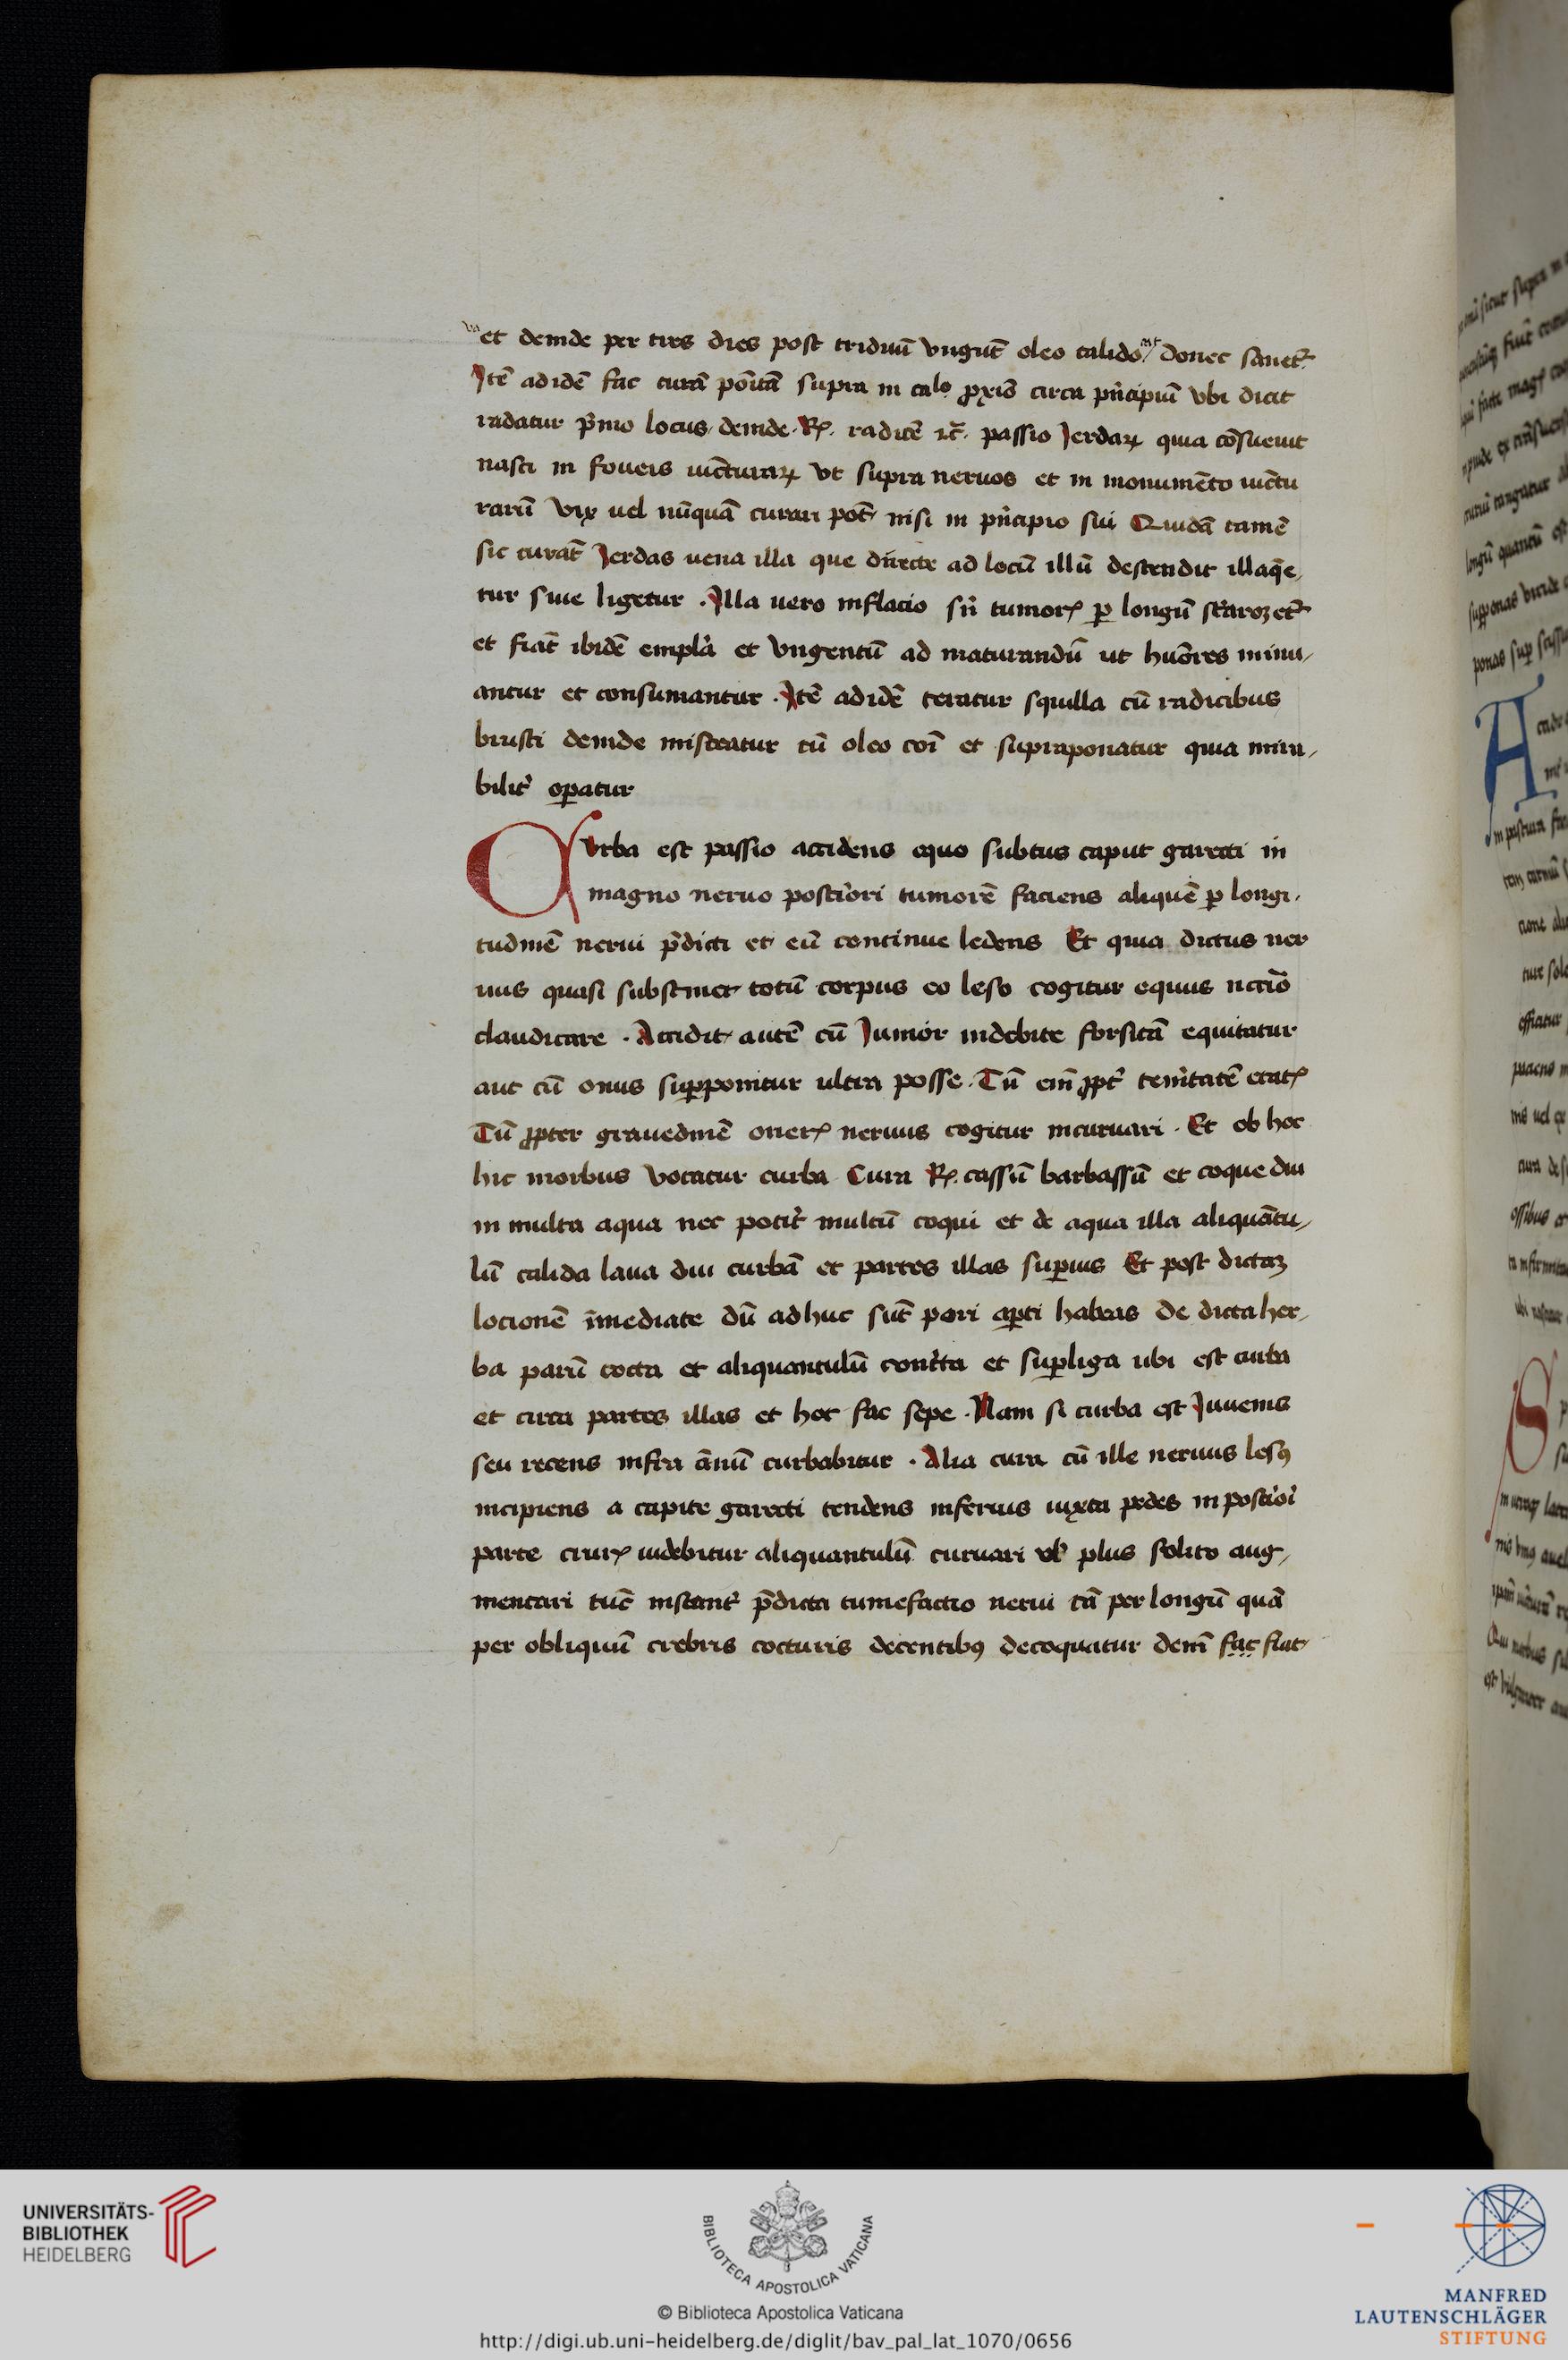 et deinde per tres dies post triduū vngūt oleo calido donec sanet᷑
Itē ad idē fac curā po᷑itā supra in ca lo ꝓxīō circa pͥncipiū vbi dicit
radatur pͥmo locus deinde ℞ radicē ⁊c̄ passio Ierdaꝝ quia cōsueuit
nasci in foueis iūcturaꝝ vt supra neruos et in monumēto iūctu
rarū vix uel nūquā curari pōt nisi in pͥncipio sui Quidā tamē
sic curāt Ierdas uena illa que directe ad locū illū descendit illaq̄e
tur siue ligetur . Illa uero inflacio sīī tumorꝭ ꝑ longū
et fiāt ibidē emplā et vngentū ad maturandū ut huōres minu
antur et consumantur . Itē ad idē teratur squilla cū radicibus
brusci deinde misceatur cū oleo coī et supraponatur quia mira
bilit᷑ oꝑatur
Curba est passio accidens equo subtus caput garecti in
magno neruo posteriori tumorē faciens aliquē ꝑ longi
tudinē nerui p̄dicti et eū continue ledens Et quia dictus ner
uus quasi substinet totū corpus eo leso cogitur equus nc̄cīō
claudicare . Accidit autē cū Iunior indebite forsitā equitatur
aut cū onus suꝑponitur ultra posse . Tū em̄ ꝓpt᷑ tenͥtatē etatꝭ
Tū ꝓpter grauedinē onerꝭ neruus cogitur incuruari . Et ob hoc
hic morbus vocatur curba Cura ℞ cassū barbassū et coque diu
in multa aqua nec potit᷑ multū coqui et de aqua illa aliquātu
lū calida laua diu curbā et partes illas suꝑius Et post dictaꝫ
locionē īmediate dū adhuc sūt pori aꝑti habeas de dicta her
ba parū cocta et aliquantulū contͥta et suꝑliga ubi est curba
et circa partes illas et hoc fac sepe . Nam si curba est Iuuenis
seu recens infra ānū curbabitur . Alia cura cū ille neruus lesꝰ
incipiens a capite garecti tendens inferius iuxta pedes in postͥoͥi
parte crurꝭ uidebitur aliquantulū curuari vl̄ plus solito aug
mentari tūc instant᷑ p̄dicta tumefactio nerui tā per longū quā
per obliquū crebris cocturis decentibꝰ decoquatur deīn fac fiat
UNIVERSITÄTS-
BIBLIOTHEK
HEIDELBERG
BIBLIOTECA APOSTOLICA VATICANA
© Biblioteca Apostolica Vaticana
http://digi.ub.uni-heidelberg.de/diglit/bav_pal_lat_1070/0656
MANFRED
LAUTENSCHLÄGER
STIFTUNG